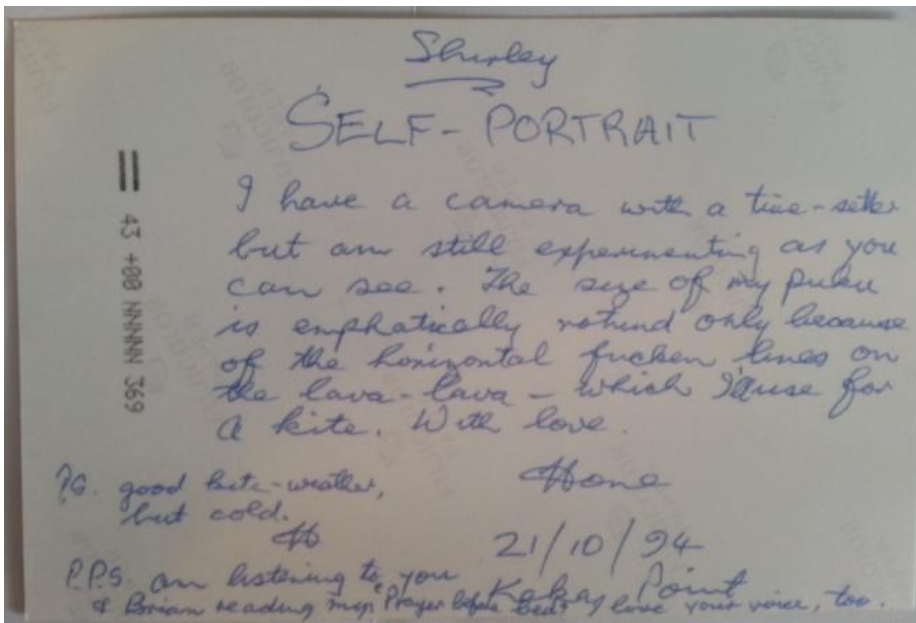 Shirley
SELF-PORTRAIT
I have a camera with a time-setter
but am still experimenting as you
can see. The size of my puku
is emphatically rotund only because
of the horizontal fucken lines on
the lava-lava – which I use for
a kite. With love.
Hone
P.S. good kite-weather,
but cold.
H
21/10/94
Kaka Point
P.P.S. am listening to you
& Brian reading my "Prayer before I love your voice, too.
43 +00 NNNNN 369